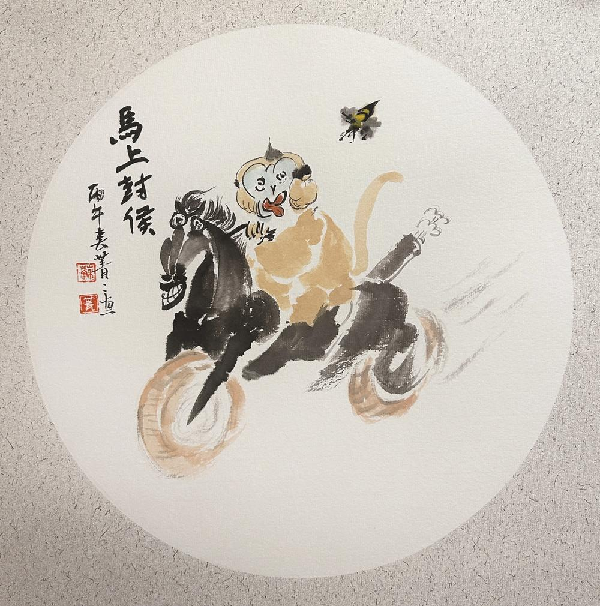 馬上封侯
丙午春菁之畫